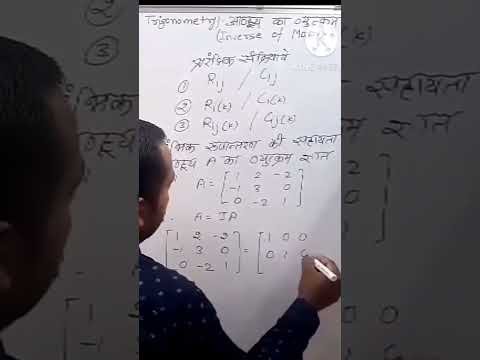 Trigonometry/ आव्यूह का व्युत्क्रम
(Inverse of
प्रारंभिक संक्रियायें
① Rij / Cij
② Ri(k) / Ci(k)
③ Rij(k) / Cij(k)
रूपान्तरण की सहायता
A का व्युत्क्रम ज्ञात
A = [ 1 2 -2
-1 3 0
0 -2 1 ]
A = IA
[ 1 2 -2
-1 3 0
0 -2 1 ] = [ 1 0 0
0 1